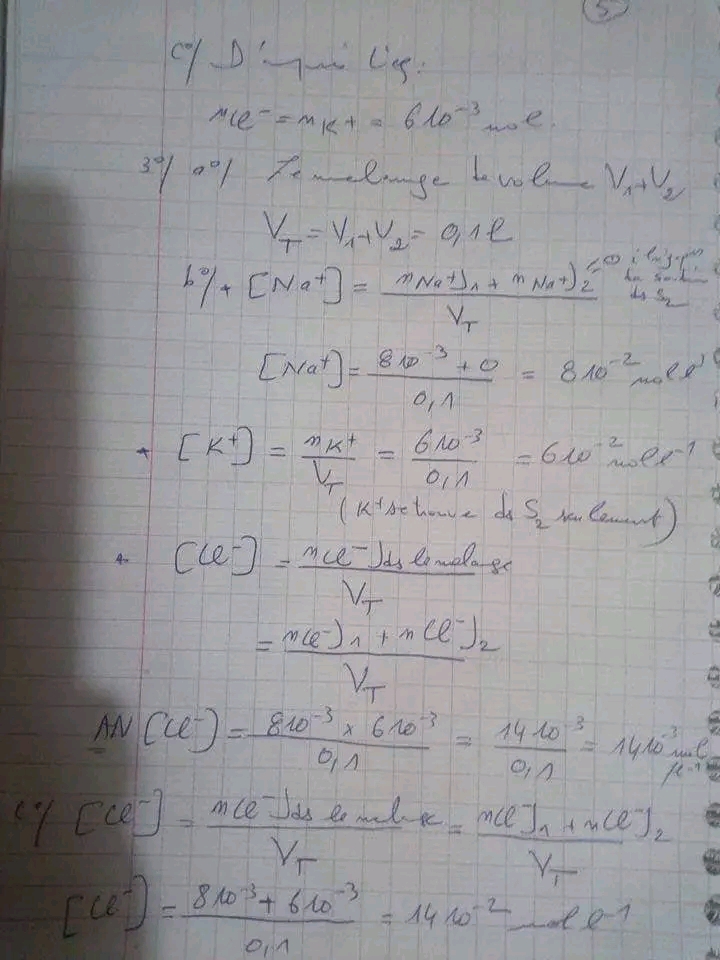 5
c°/ D'après l'eq:
nCl⁻ = nK+ = 6 10⁻³ mol.
3°/ a°/ Le melange de volume V₁+V₂
V_T = V₁+V₂ = 0,1 l
b°/ + [Na⁺] = nNa⁺)₁ + nNa⁺)₂ / V_T = 0
ds S₂
[Na⁺] = 8 10⁻³ + 0 / 0,1 = 8 10⁻² mol l⁻¹
* [K⁺] = nK⁺ / V_T = 6 10⁻³ / 0,1 = 6 10⁻² mol l⁻¹
(K⁺ se trouve ds S₂ seulement)
* [Cl⁻] = nCl⁻)ds le melange / V_T
= nCl⁻)₁ + nCl⁻)₂ / V_T
AN [Cl⁻] = 8 10⁻³ x 6 10⁻³ / 0,1 = 14 10⁻³ / 0,1 = 14 10⁻³ mol l⁻¹
c°/ [Cl⁻] = nCl⁻)ds le melange / V_T = nCl⁻)₁ + nCl⁻)₂ / V_T
[Cl⁻] = 8 10⁻³ + 6 10⁻³ / 0,1 = 14 10⁻² mol l⁻¹